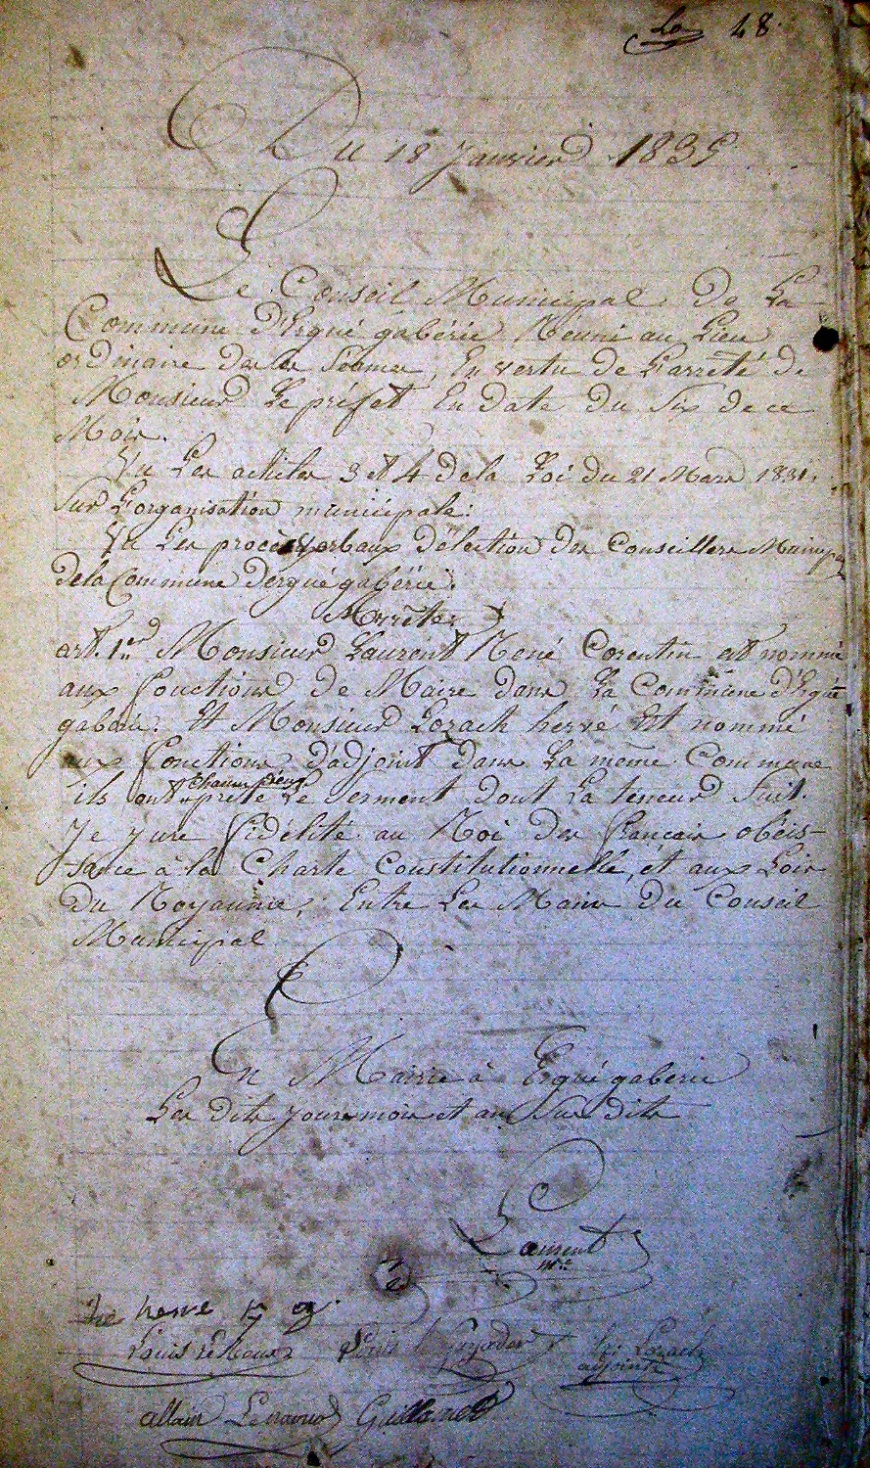 48.
Du 18 Janvier 1835
Le Conseil Municipal De La
Commune d'Ergué gabéric Réuni au Lieu
ordinaire de En vertu de L'arrêté de
Monsieur Le préfet En date du Six de ce
Mois.
Vu Les articles 3 et 4 de la Loi du 21 Mars 1831,
Sur L'organisation municipale:
Vu Les procès verbaux d'élection des Conseillers
de la Commune dergué gabéric.
Arrête
art. 1er Monsieur Laurent René Corentin est nommé
aux fonctions de Maire dans La Commune d'Ergué
gabéric. Et Monsieur Lozach hervé Est nommé
aux fonctions d'adjoint dans La même Commune
ils ont prété Le Serment dont La teneur Suit.
Je jure fidélité au Roi des français obéis-
-sance à la Charte Constitutionnelle, et aux Lois
Du Royaume, Entre Les Mains Du Conseil
Municipal
En Mairie à Ergué gabéric
Les dits jours mois et an Sus dits
Laurent
hervé
Louis Lozach
adjoint
allain